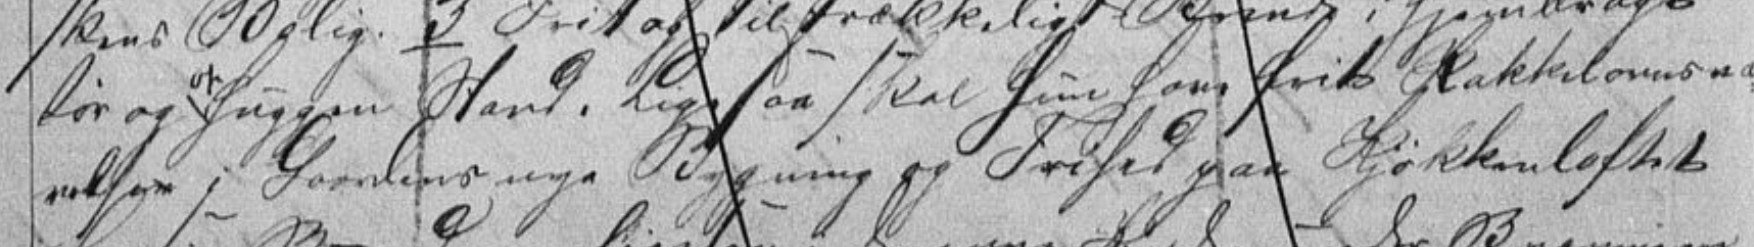 skens Bolig. 3 Frit og tilstrækkeligt Brænde, hjembragt
tör og ophuggen Stand. Ligesaa skal hun have frit Kakkelovnsvæ-
relse i Gaardens nye Bygning og Frihed paa Kjökkenloftet